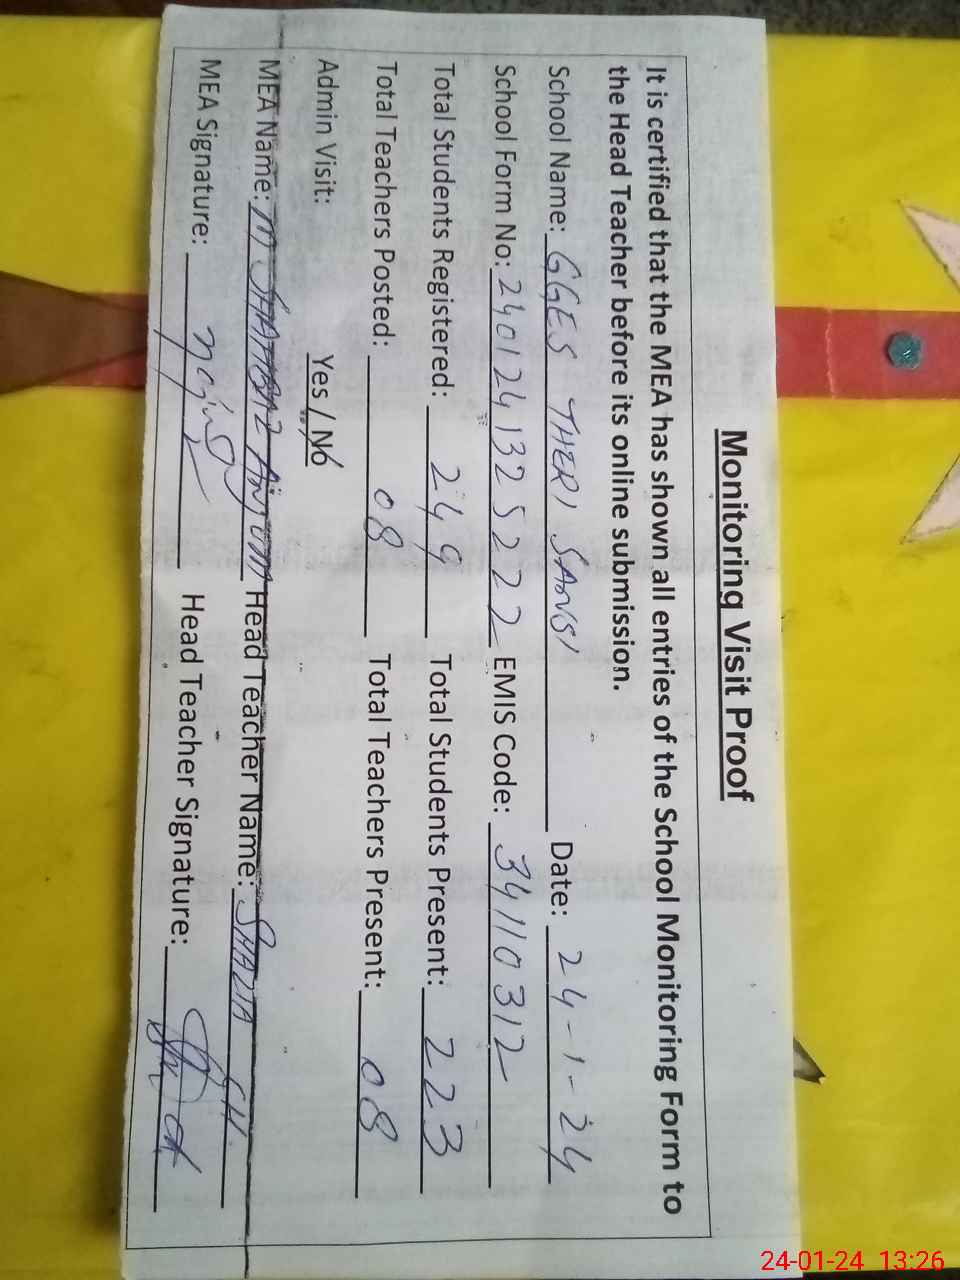 Monitoring Visit Proof
It is certified that the MEA has shown all entries of the School Monitoring Form to
the Head Teacher before its online submission.
School Name: GGES THERI SANSI Date: 24-1-24
School Form No: 2401241325222 EMIS Code: 34110312
Total Students Registered: 249 Total Students Present: 223
Total Teachers Posted: 08 Total Teachers Present: 08
Admin Visit: Yes / No
MEA Name: M SHAHBAZ Anjum Head Teacher Name: SHAZIA
MEA Signature: Head Teacher Signature:
24-01-24 13:26